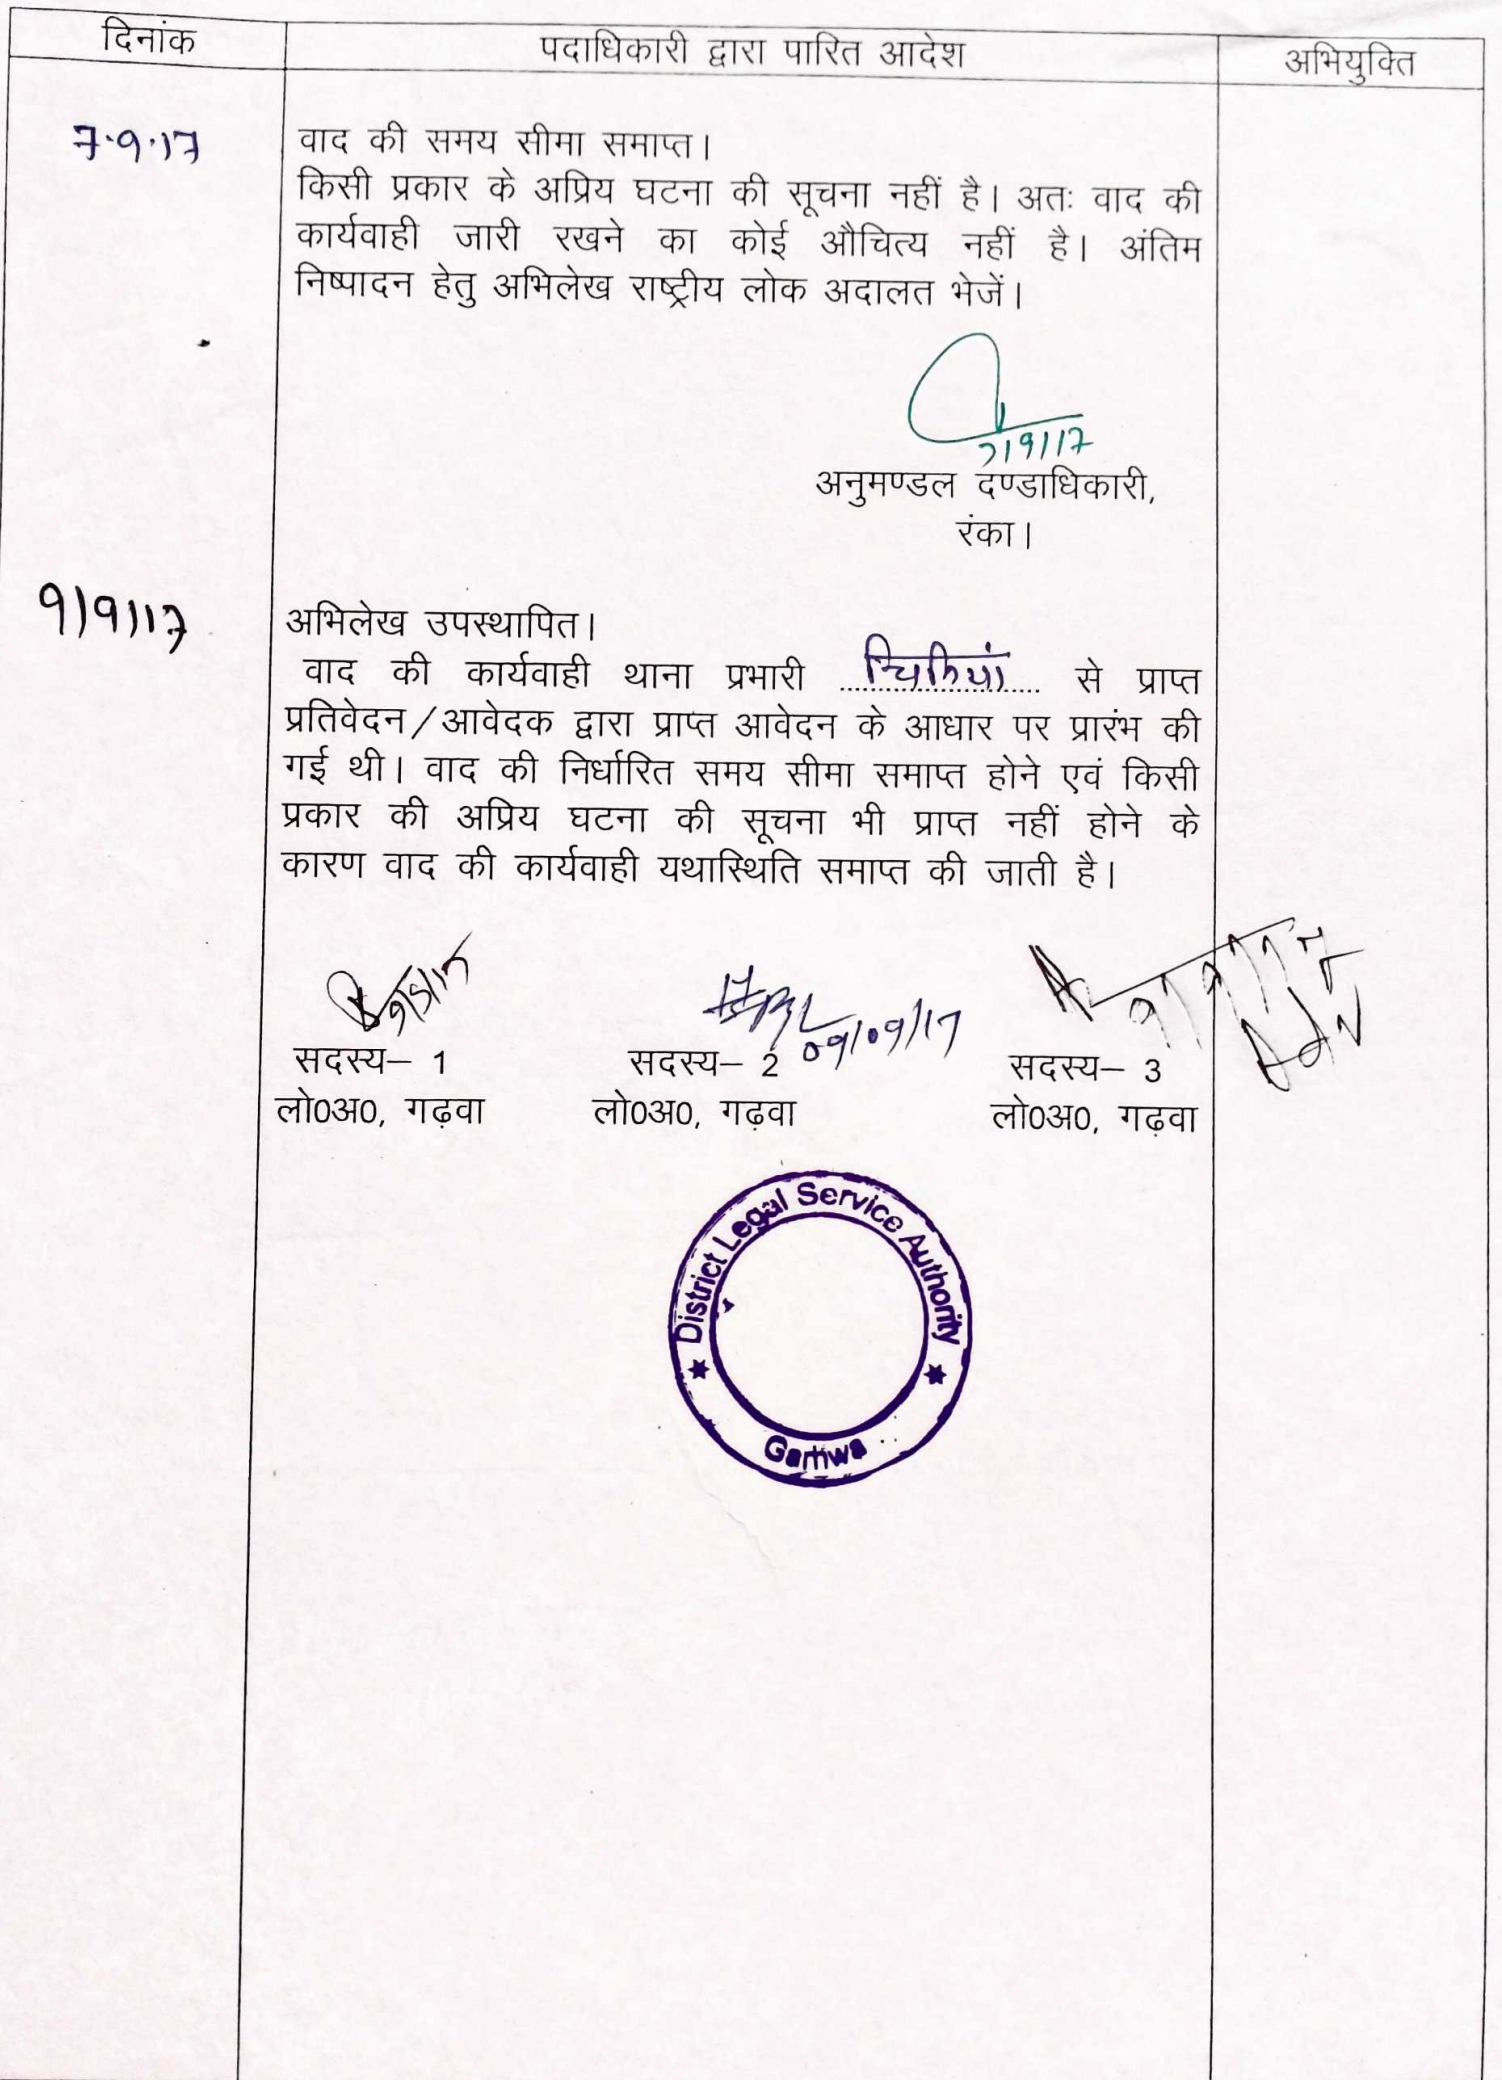 दिनांक पदाधिकारी द्वारा पारित आदेश अभियुक्ति
7.9.17 वाद की समय सीमा समाप्त।
किसी प्रकार के अप्रिय घटना की सूचना नहीं है। अतः वाद की
कार्यवाही जारी रखने का कोई औचित्य नहीं है। अंतिम
निष्पादन हेतु अभिलेख राष्ट्रीय लोक अदालत भेजें।
7/9/17
अनुमण्डल दण्डाधिकारी,
रंका।
9/9/17 अभिलेख उपस्थापित।
वाद की कार्यवाही थाना प्रभारी ........ से प्राप्त
प्रतिवेदन/आवेदक द्वारा प्राप्त आवेदन के आधार पर प्रारंभ की
गई थी। वाद की निर्धारित समय सीमा समाप्त होने एवं किसी
प्रकार की अप्रिय घटना की सूचना भी प्राप्त नहीं होने के
कारण वाद की कार्यवाही यथास्थिति समाप्त की जाती है।
09/09/17
सदस्य– 1 सदस्य– 2 सदस्य– 3
लो0अ0, गढ़वा लो0अ0, गढ़वा लो0अ0, गढ़वा
District Legal Service Authority
Garhwa